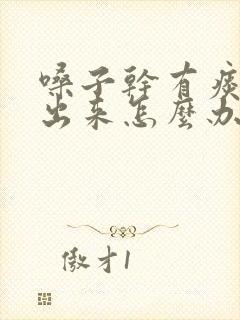 嗓子幹有痰
出来怎麼办
傲才1